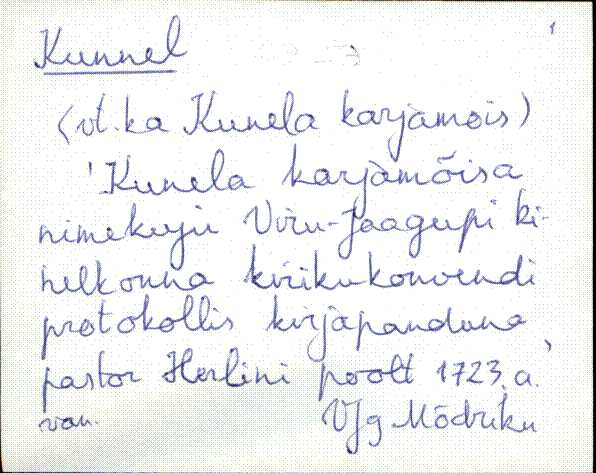 1
Kunnel
(vt. ka Kunela karjamõis)
'Kunela karjamõisa
nimekuju Viru-Jaagupi ki-
helkonna kirikukonvendi
protokollis kirjapanduna
pastor Herlini poolt 1723. a.'
van. VJg Mõdriku